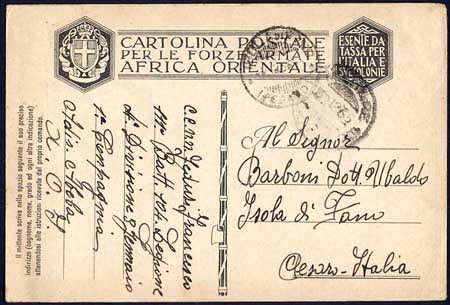 CARTOLINA POSTALE
PER LE FORZE ARMATE
AFRICA ORIENTALE
ESENTE DA
TASSA PER
L'ITALIA E
SUE COLONIE
Il mittente scriva nello spazio seguente il suo preciso
indirizzo (cognome, nome, grado ed ogni altra indicazione)
attenendosi alle istruzioni ricevute dal proprio comando.
Francesco
Batt. 104 Legione
Divisione 2 Febbraio
1ª Compagnia
Addis Abeba
A. O. I.
Al Signor
Barboni Dott. Ubaldo
Isola di Fano
Italia